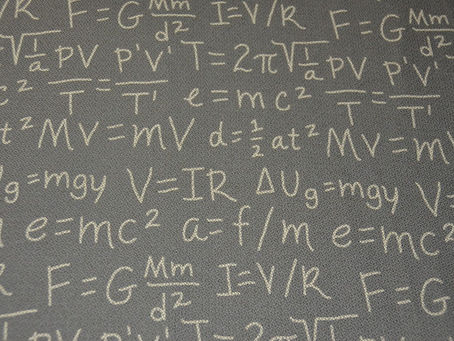 /R F=G Mm/d² I=V/R F=G Mm/d²
√1/a PV/T=P'V'/T' T=2π√1/a PV/T=P'V'/T'
c² e=mc²
t² MV=mV d=½at² MV=m
g=mgy V=IR ΔUg=mgy V=
e=mc² a=f/m e=mc²
R F=G Mm/d² I=V/R F=G
PV P'V' T=2π√1 PV P'V'